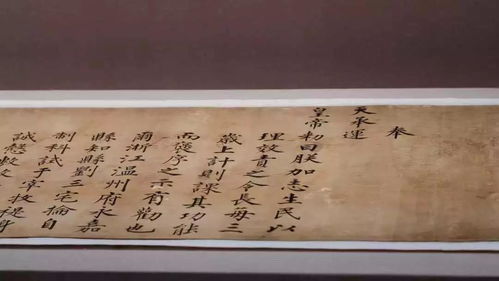 奉
天承運
皇帝勅曰朕加志生民以
理效責之令長每三
歲上計則課其功能
而褒序之示有勸也
爾浙江溫州府永嘉
縣知縣劉三宅掄自
制科試于宰牧褆身
誠